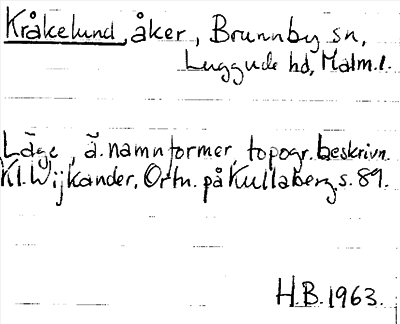 Kråkelund, åker, Brunnby sn,
Luggude hd, Malm.l.
Läge, ä. namnformer, topogr. beskrivn.
Kl. Wijkander, Ortn. på Kullaberg s. 89.
H.B. 1963.